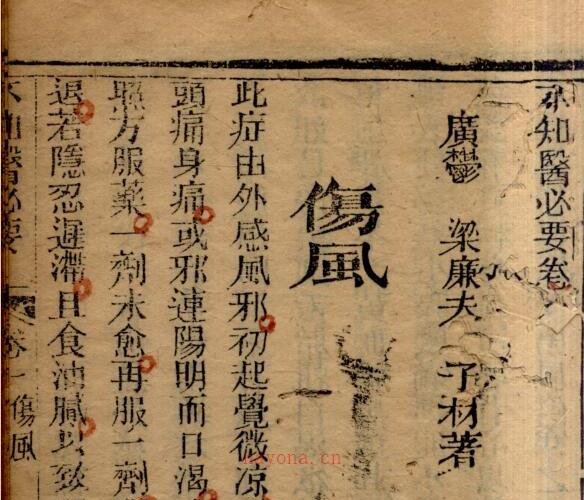 不知醫必要卷
廣鬱 梁廉夫 子材著
傷風
此症由外感風邪初起覺微涼
頭痛身痛或邪連陽明而口渴
照方服藥一劑未愈再服一劑
退若隱忍遲滯且食油膩以致
不知醫必要 卷一 傷風
hayona.cn